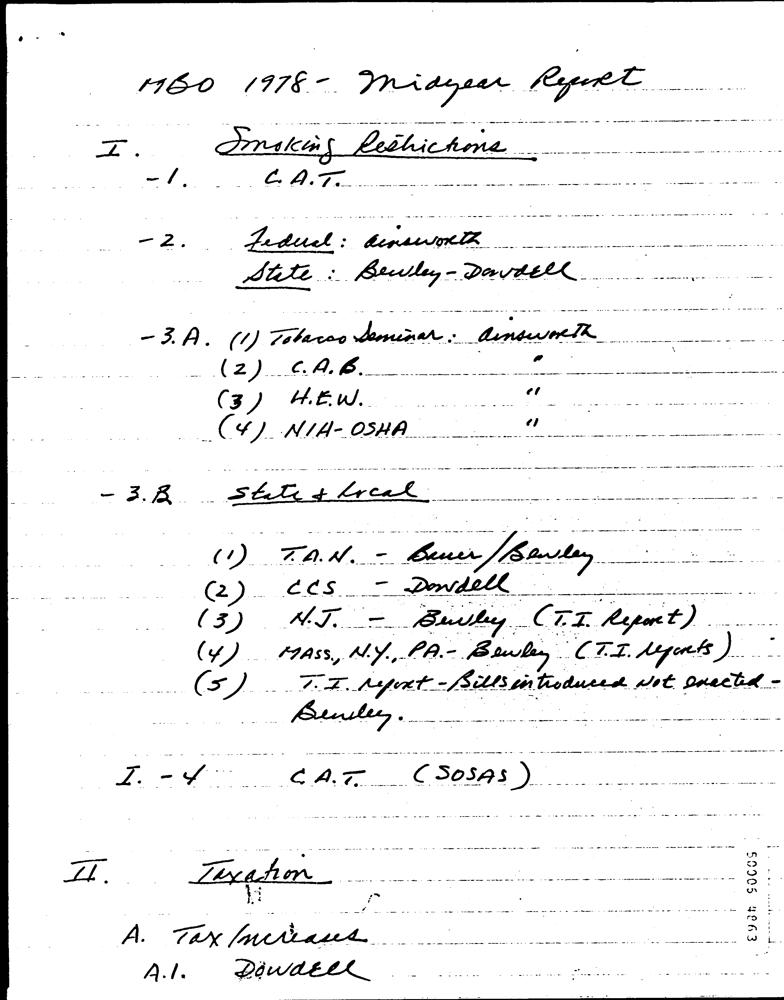 MBO 1978 - Midyear Report
I. Smoking Restrictions
-1. C.A.T.
-2. Federal: Ainsworth
State: Bewley-Dowdell
-3.A. (1) Tobacco Seminar: Ainsworth
(2) C.A.B. "
(3) H.E.W. "
(4) NIH-OSHA "
-3.B State & Local
(1) T.A.N. - /Bewley
(2) CCS - Dowdell
(3) N.J. - Bewley (T.I. Report)
(4) Mass., N.Y., PA. - Bewley (T.I. reports)
(5) T.I. report - Bills introduced not enacted -
Bewley.
I. -4 C.A.T. (SOSAS)
II. Taxation
A. Tax Increases
A.1. Dowdell
50005 4863